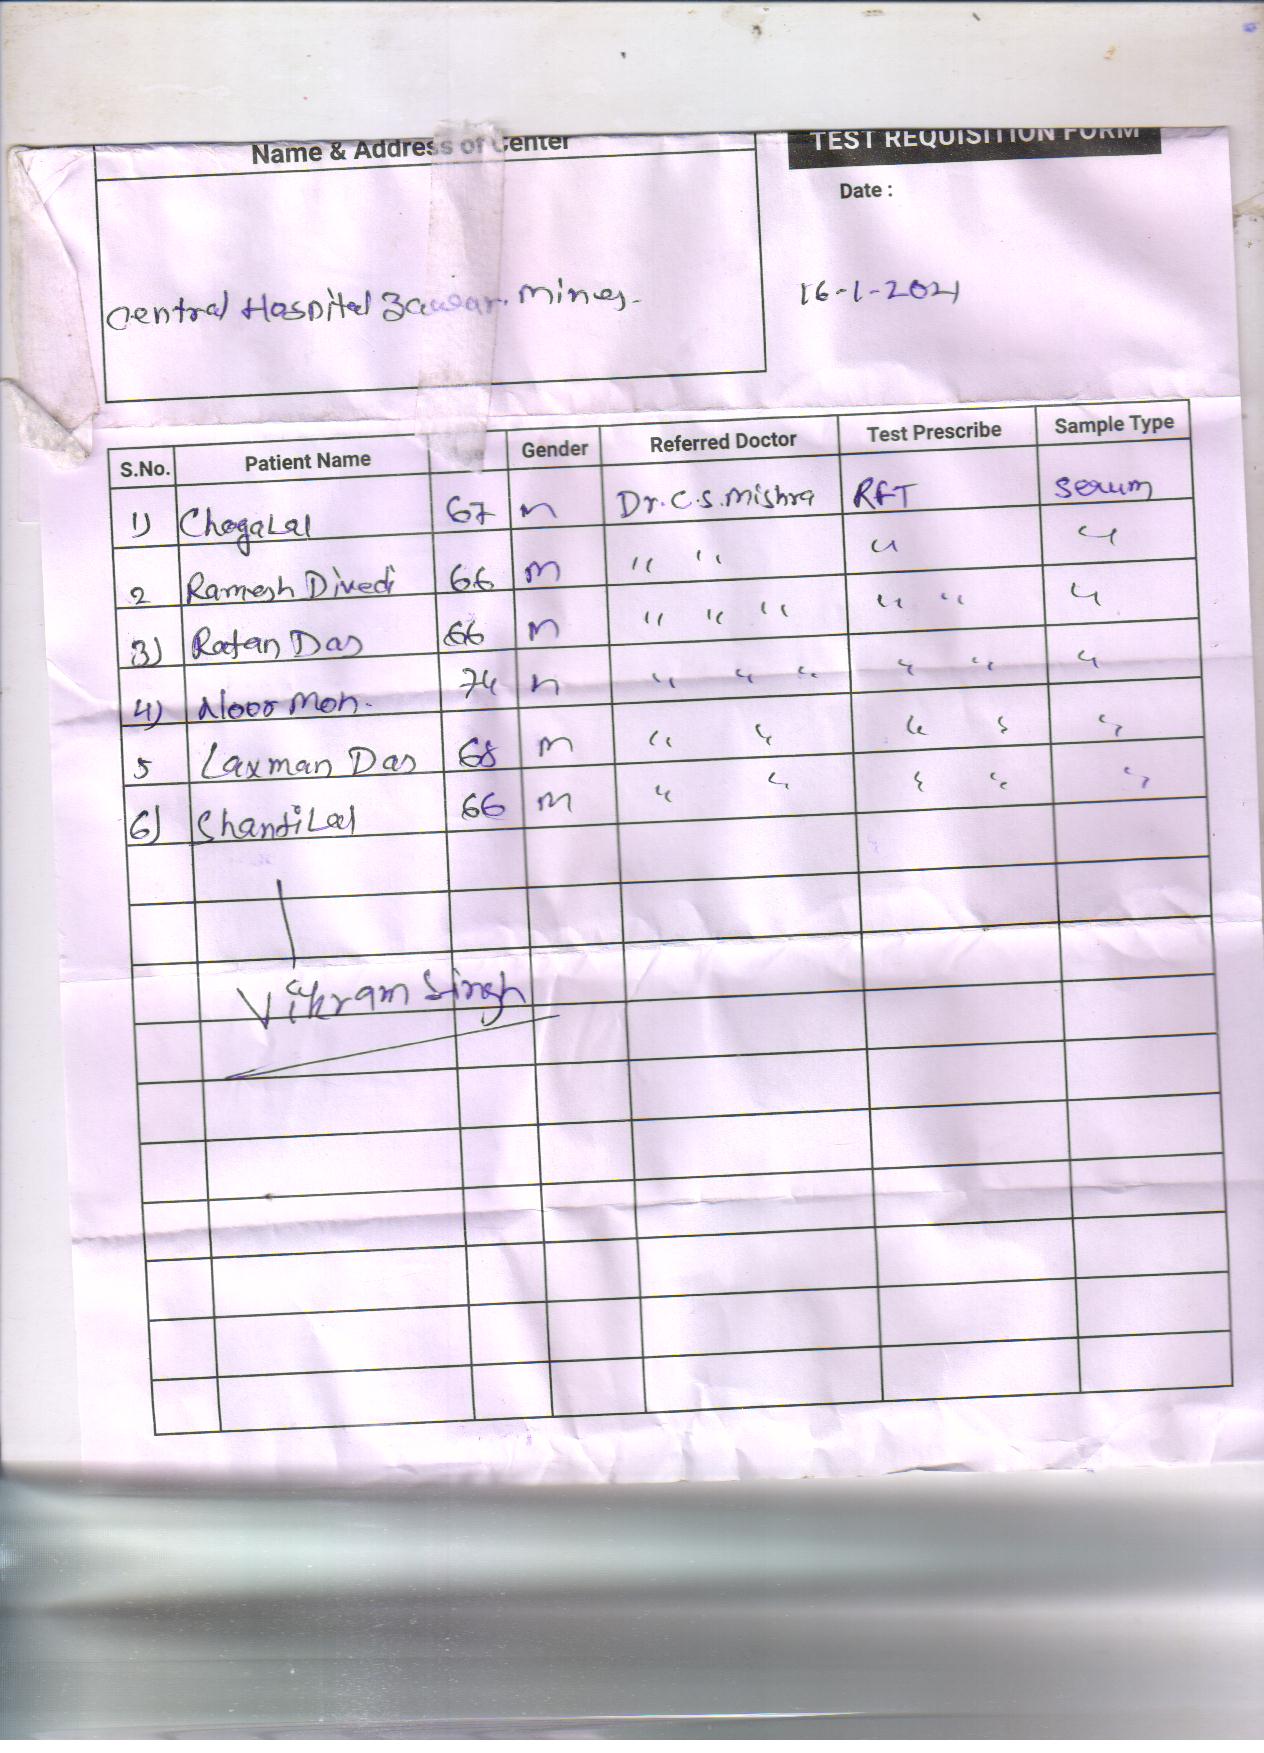 Name & Address of Center
TEST REQUISITION FORM
Date :
Central Hospital Zawar. Mines.
16-1-2021
S.No. Patient Name Gender Referred Doctor Test Prescribe Sample Type
1) ChogaLal 67 m Dr. C.S. Mishra RFT Serum
2 Ramesh Divedi 66 m " " " "
3) Ratan Das 66 m " " " " " "
4) Noor Moh. 74 m " " " " " "
5 Laxman Das 68 m " " " " "
6) ShantiLal 66 m " " " " "
Vikram Singh